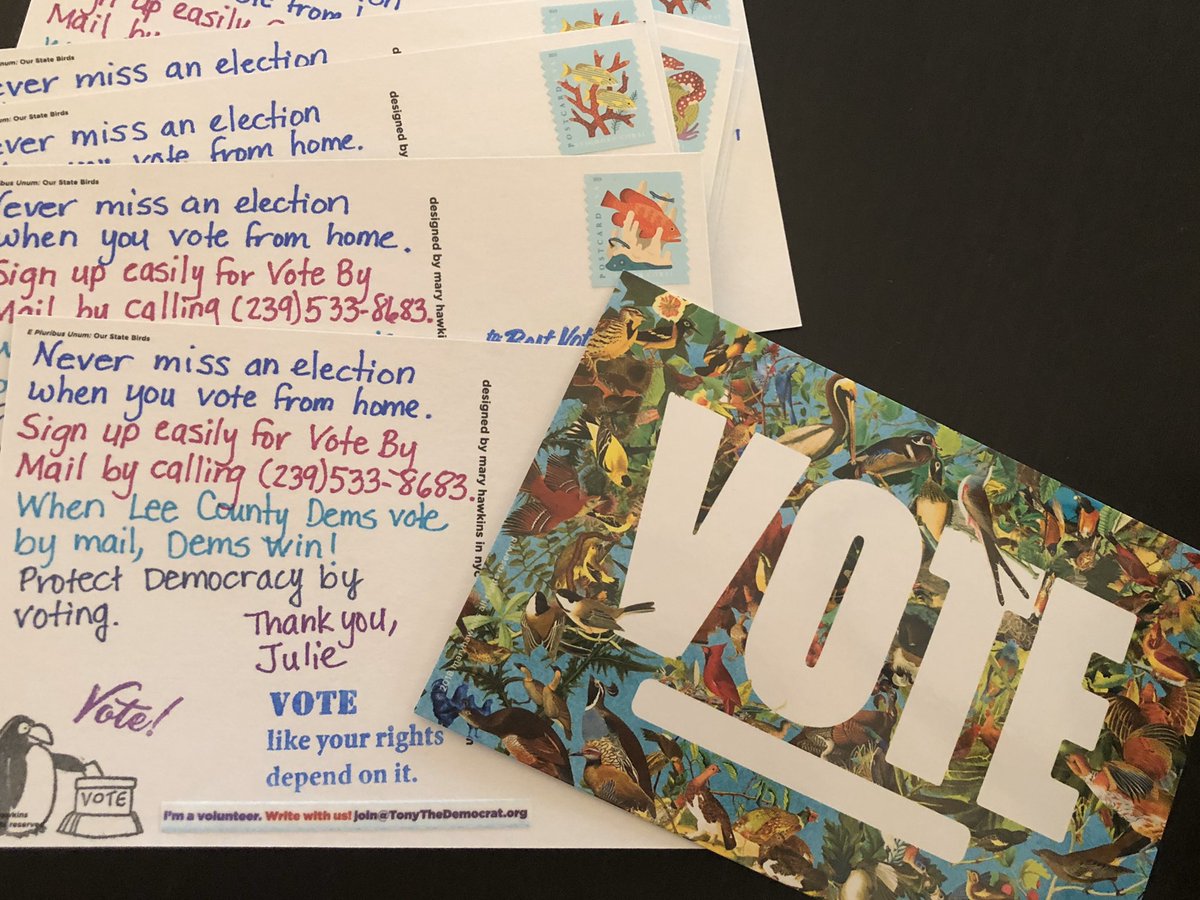 Mail by
Never miss an election
ever miss an election
vote from home.
designed by
um: Our State Birds
Unum: Our State Birds
POSTCARD
ibus Unum: Our State Birds
ever miss an election
when you vote from home.
Sign up easily for Vote By
Mail by calling (239)533-8683.
designed by mary hawkins
POSTCARD
E Pluribus Unum: Our State Birds
Never miss an election
when you vote from home.
Sign up easily for Vote By
Mail by calling (239)533-8683.
When Lee County Dems vote
by mail, Dems win!
Protect Democracy by
voting.
Thank you,
Julie
designed by mary hawkins in nyc
Vote!
VOTE
VOTE
like your rights
depend on it.
I'm a volunteer. Write with us! join@TonyTheDemocrat.org
VOTE